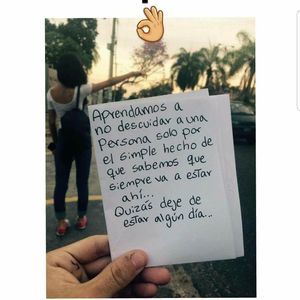 Aprendamos a
no descuidar a una
Persona solo por
el simple hecho de
que sabemos que
siempre va a estar
ahí...
Quizás deje de
estar algún día...